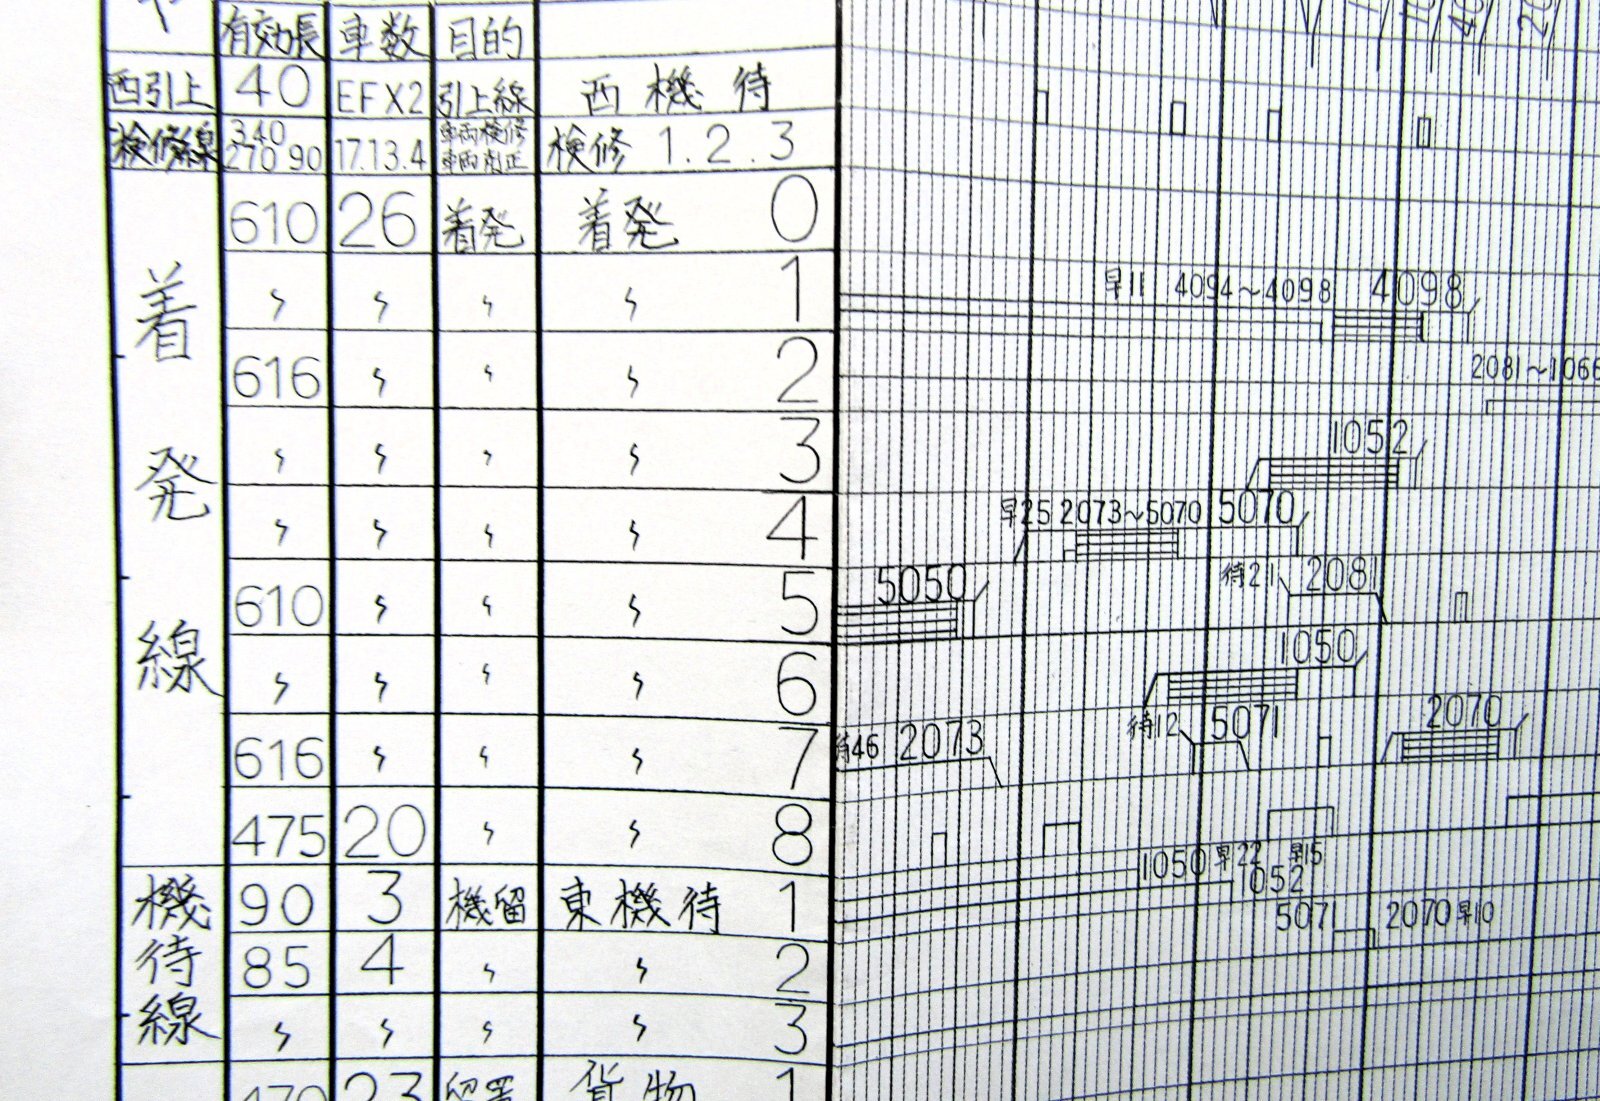 有効長 車数 目的
西引上 40 EF×2 引上線 西機待
検修線 340 270 90 17.13.4 車両検修 車両削正 検修 1.2.3
着発線
610 26 着発 着発 0
〃 〃 〃 〃 1
616 〃 〃 〃 2
〃 〃 〃 〃 3
〃 〃 〃 〃 4
610 〃 〃 〃 5
〃 〃 〃 〃 6
616 〃 〃 〃 7
475 20 〃 〃 8
機待線
90 3 機留 東機待 1
85 4 〃 〃 2
〃 〃 〃 〃 3
470 23 留置 貨物 1
早11 4094～4098 4098
2081～1066
1052
早25 2073～5070 5070
5050 待21 2081
1050
待46 2073 待12 5071 2070
1050 早22 早15
1052
5071 2070 早10